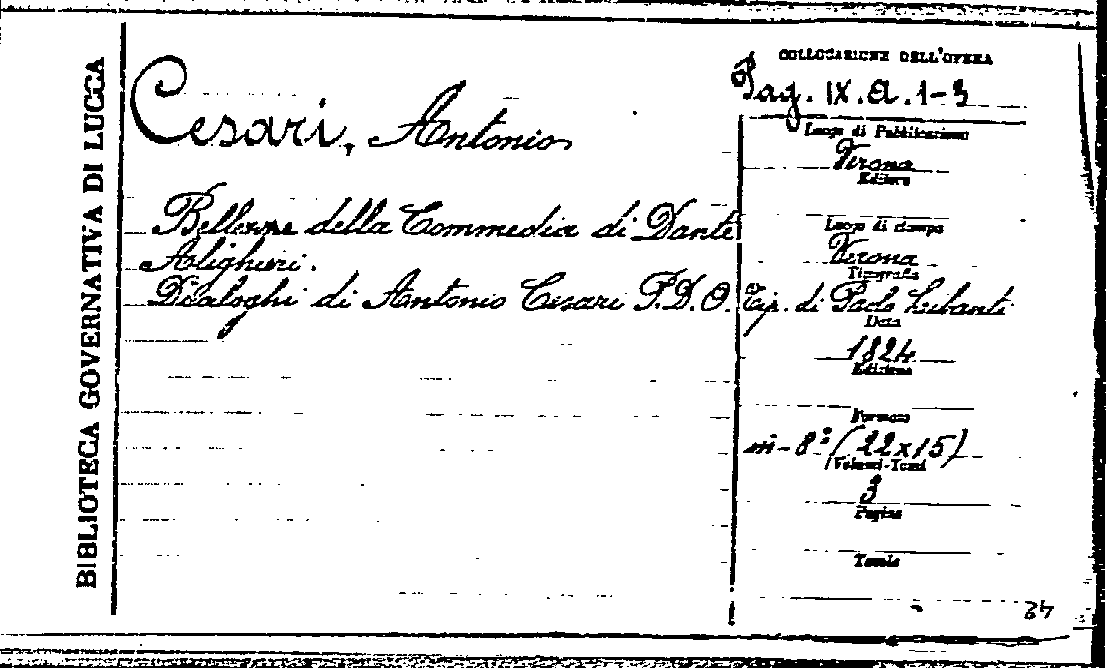 BIBLIOTECA GOVERNATIVA DI LUCCA
Cesari, Antonio
Bellezze della Commedia di Dante
Alighieri.
Dialoghi di Antonio Cesari P.D.O.
COLLOCAZIONE DELL'OPERA
Pag. IX. A. 1-3
Luogo di Pubblicazione
Verona
Editore
Luogo di stampa
Verona
Tipografia
Tip. di Paolo Libanti
Data
1824
Edizione
Formato
in-8º (22x15)
Volumi-Tomi
3
Pagine
Tavole